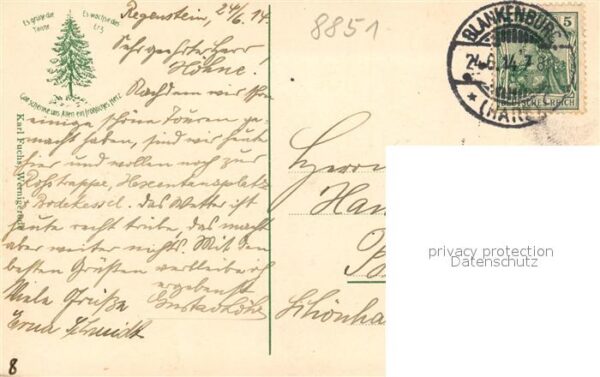 Es grüne die
Tanne
Es wachse das
Erz
Gott schenke uns Allen ein fröhliches Herz
Karl Fuchs, Wernigerode
Regenstein, 24/6. 14.
8851
Sehr geehrter Herr
Höhne.
Nachdem wir schon
einige schöne Touren ge-
macht haben, sind wir heute
hier und wollen noch zur
Roßtrappe, Hexentanzplatz
Bodekessel. Das Wetter ist
heute recht trübe, das macht
aber weiter nichts. Mit den
besten Grüßen verbleibe ich
ergebenst
Viele Grüße
Erna Schmidt
BLANKENBURG
24.6.14.7
(HARZ)
5
DEUTSCHES REICH
Herrn
Schönha
privacy protection
Datenschutz
8